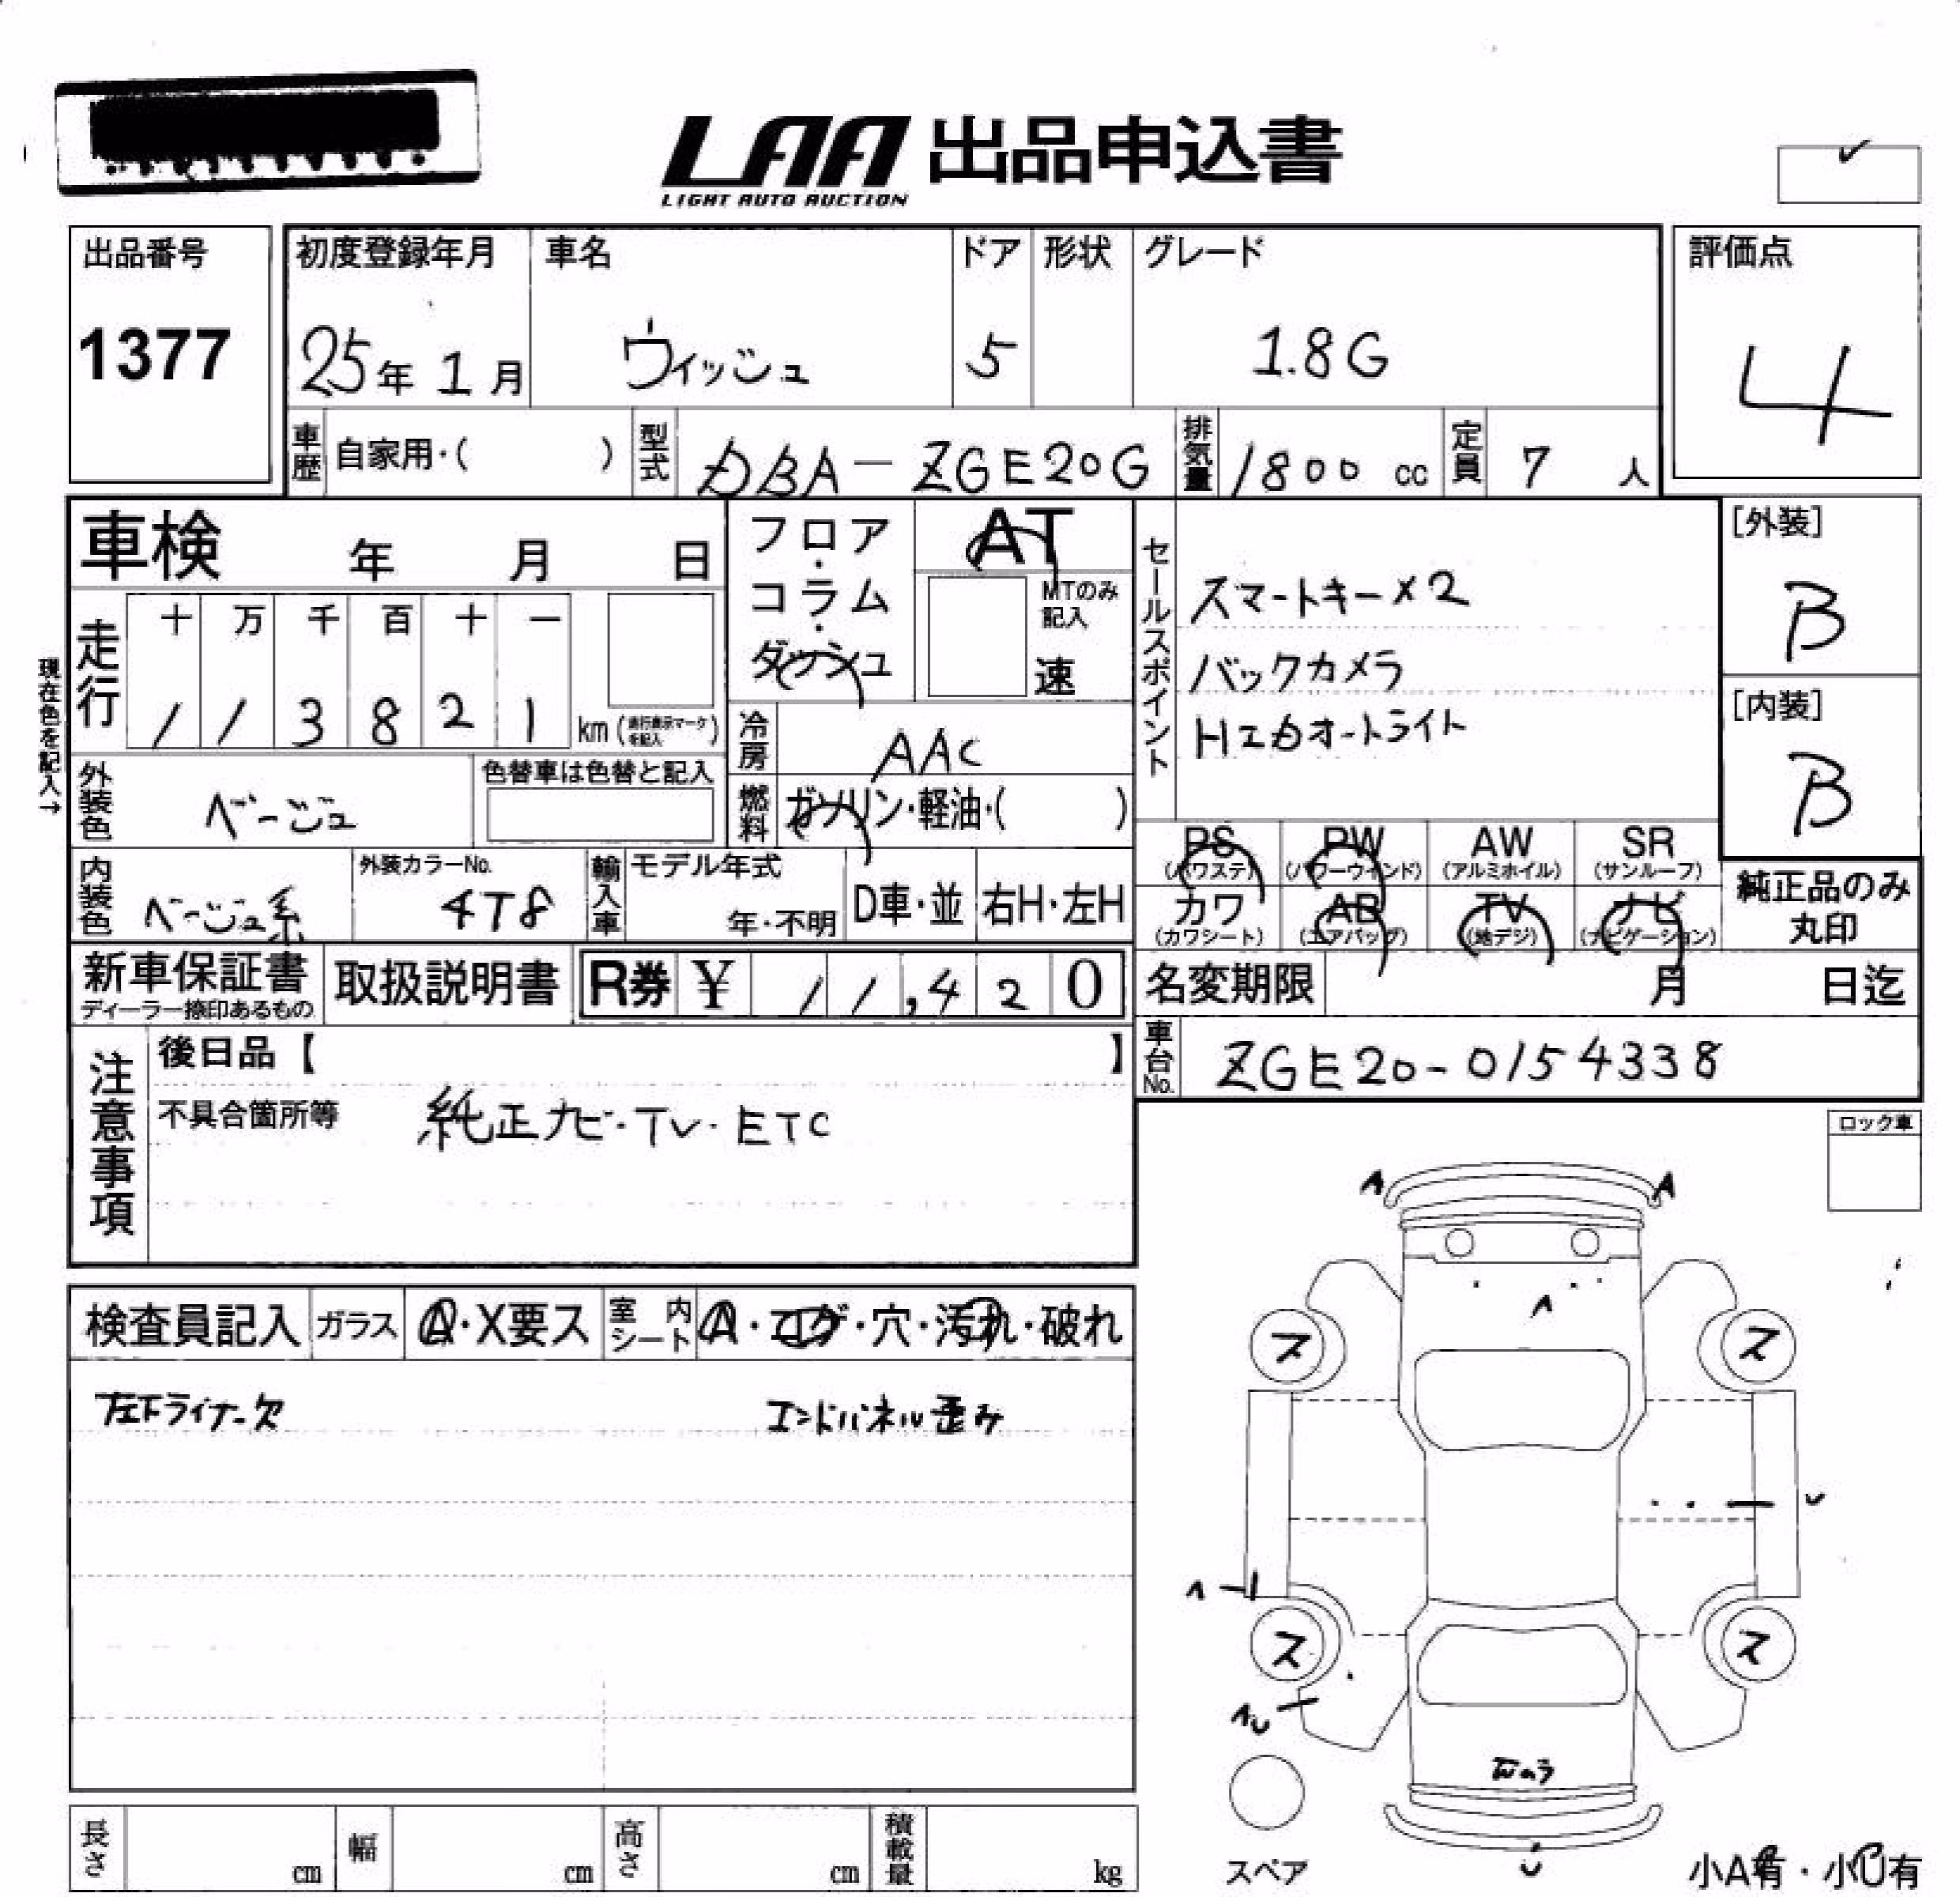 LAA 出品申込書
LIGHT AUTO AUCTION
出品番号
1377
初度登録年月 車名 ドア 形状 グレード
25年 1月 ウィッシュ 5 1.8G
評価点
4
車歴 自家用・( ) 型式 DBA-ZGE20G 排気量 1800 cc 定員 7 人
車検 年 月 日
フロア・コラム・ダッシュ
AT
MTのみ記入
速
現在色を記入→
走行
十 万 千 百 十 一
1 1 3 8 2 1 km (走行表示マークを記入)
冷房 AAC
燃料 ガソリン・軽油・( )
セールスポイント
スマートキー×2
バックカメラ
HIDオートライト
[外装]
B
[内装]
B
外装色 ベージュ
色替車は色替と記入
内装色 ベージュ系
外装カラーNo.
4T8
輸入車 モデル年式
年・不明 D車・並 右H・左H
PS (パワステ) PW (パワーウィンド) AW (アルミホイル) SR (サンルーフ)
カワ (カワシート) AB (エアバッグ) TV (地デジ) ナビ (ナビゲーション)
純正品のみ
丸印
新車保証書
ディーラー捺印あるもの
取扱説明書
R券 ¥ 11,420
名変期限 月 日迄
車台No. ZGE20-0154338
注意事項
後日品【 】
不具合箇所等 純正ナビ・TV・ETC
ロック車
検査員記入 ガラス A・X要ス 室内シート A・コゲ・穴・汚れ・破れ
左下ライナー欠 エンドパネル歪み
A A
A
ス ス
U
A
ス ス
AU
U
スペア
小A有・小U有
長さ cm 幅 cm 高さ cm 積載量 kg